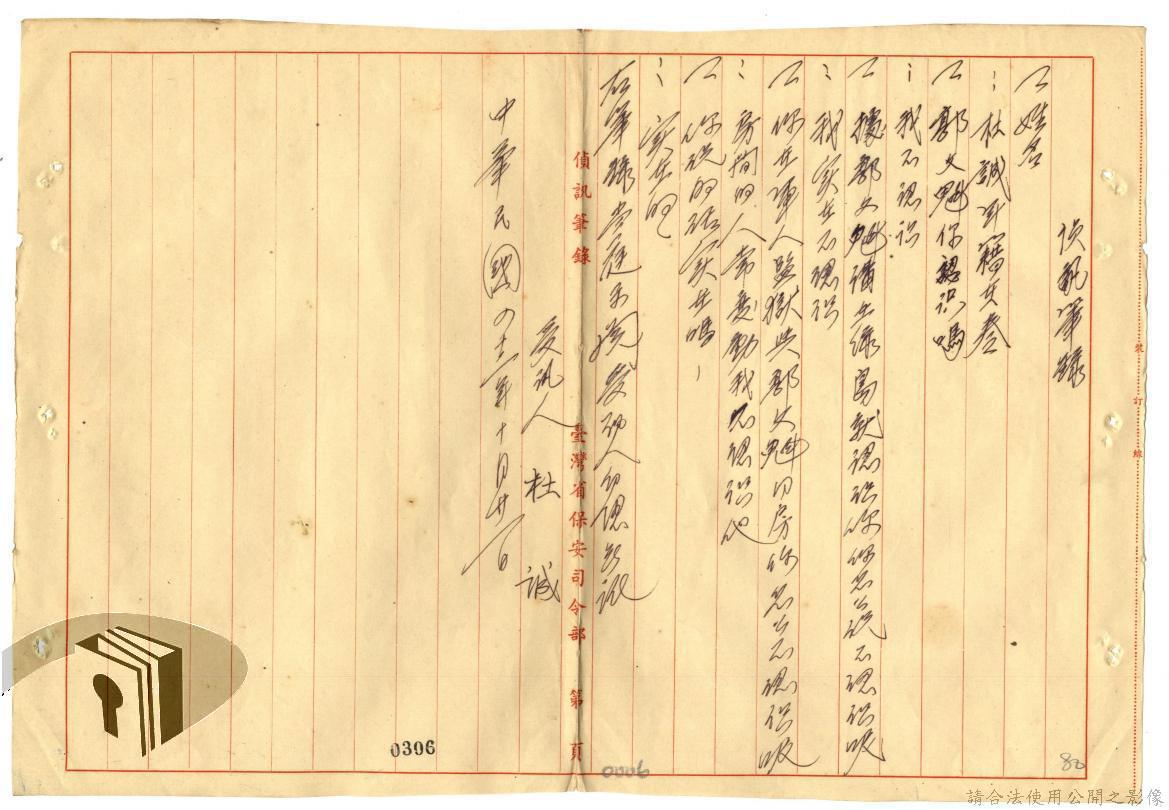 偵訊筆錄
姓名
杜誠年籍在卷
郭文魁你認識嗎
我不認識
據郭文魁講在綠島就認識你你怎麼說不認識呢
我實在不認識
你在軍人監獄與郭文魁同房你怎麼不認識呢
房間的人常變動我不認識他
你說的話實在嗎
實在的
右筆錄當庭示閱受訊人即認無訛
受訊人 杜 誠
中華民國四十二年十月廿 日
偵訊筆錄
臺灣省保安司令部 第 頁
裝訂線
0306
0006
80
請合法使用公開之影像